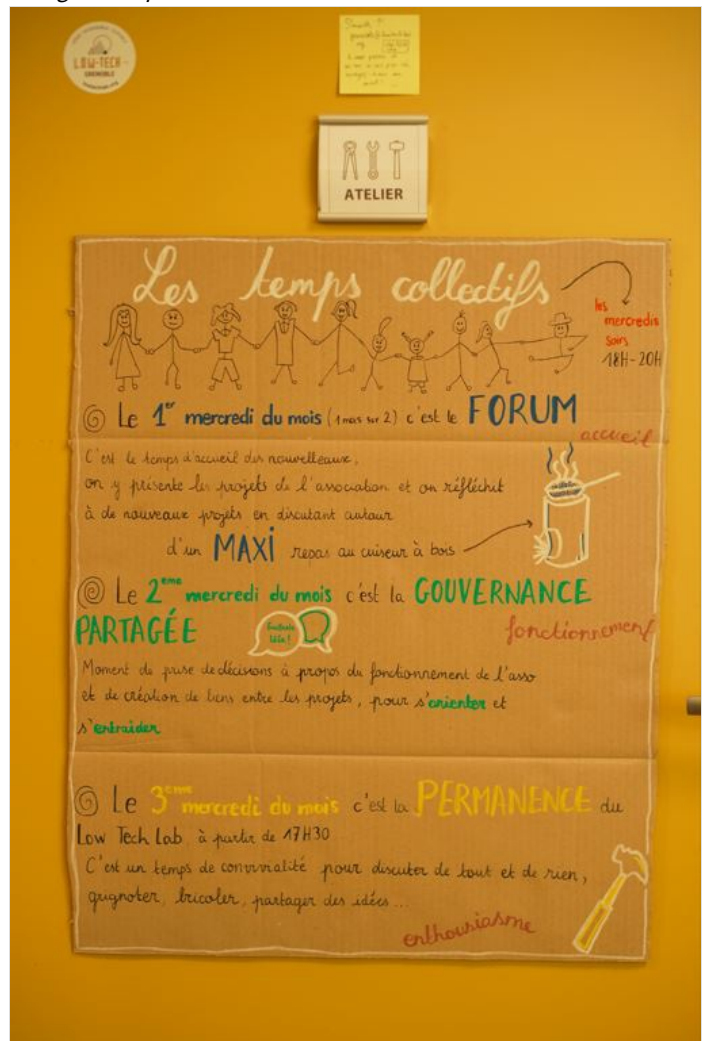 LOW-TECH
GRENOBLE
ATELIER
Les temps collectifs
les
mercredis
soirs
18H-20H
Le 1er mercredi du mois (1 mois sur 2) c'est le FORUM
accueil
C'est le temps d'accueil des nouvelleaux,
on y présente les projets de l'association et on réfléchit
à de nouveaux projets en discutant autour
d'un MAXI repas au cuiseur à bois
Le 2ème mercredi du mois c'est la GOUVERNANCE
PARTAGÉE
fonctionnement
Moment de prise de décisions à propos du fonctionnement de l'asso
et de création de liens entre les projets, pour s'orienter et
s'entraider
Le 3ème mercredi du mois c'est la PERMANENCE du
Low Tech Lab, à partir de 17H30
C'est un temps de convivialité pour discuter de tout et de rien,
grignoter, bricoler, partager des idées...
enthousiasme